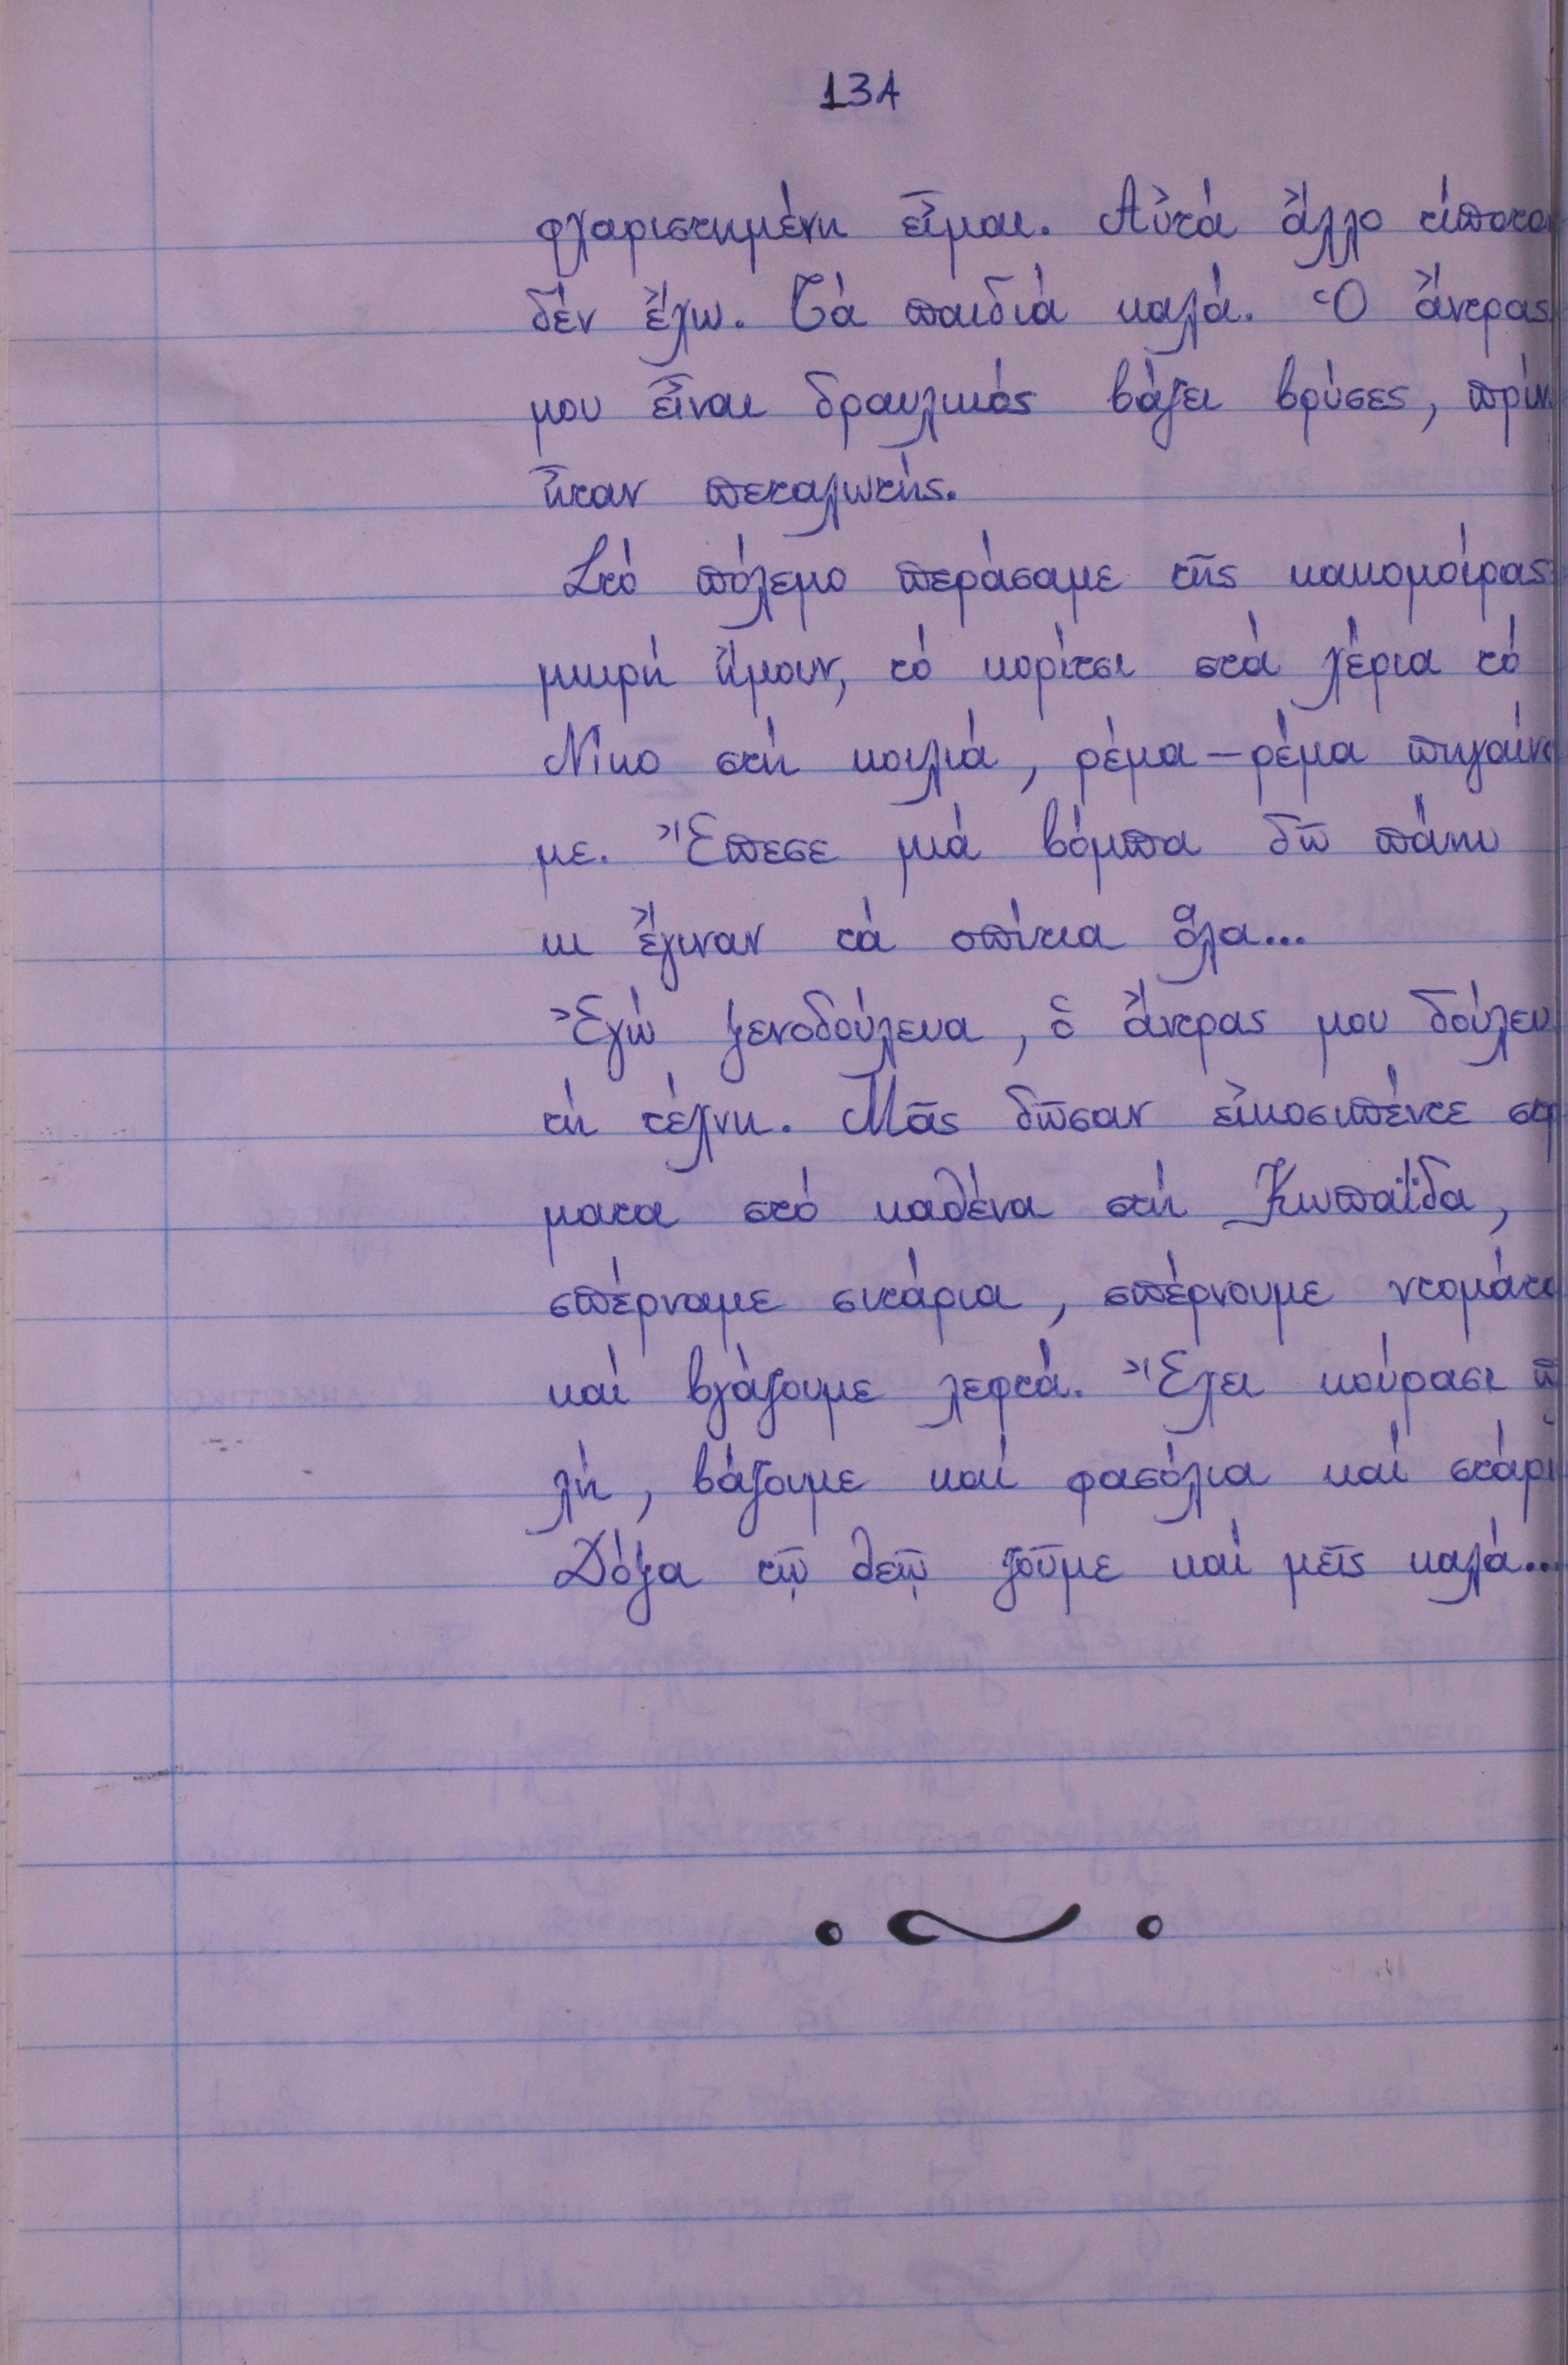 134
φχαριστημένη εἶμαι. Αὐτά ἄλλο τίποτα
δέν ἔχω. Τά παιδιά καλά. Ὁ ἄντρας
μου εἶναι δραυλικός βάζει βρύσες, πρίν
ἦταν πεταλωτής.
Στό πόλεμο περάσαμε τῆς κακομοίρας
μικρή ἤμουν, τό κορίτσι στά χέρια τό
Νίκο στή κοιλιά, ρέμα-ρέμα πηγαίνα
με. Ἔπεσε μιά βόμπα δῶ πάνω
κι ἔγιναν τά σπίτια ὅλα...
Ἐγώ ξενοδούλευα, ὁ ἄντρας μου δούλευ
τή τέχνη. Μᾶς δῶσαν εἰκοσιπέντε στρ
ματα στό καθένα στή Κωπαΐδα,
σπέρναμε σιτάρια, σπέρνουμε ντομάτα
καί βγάζουμε λεφτά. Ἔχει κούραση π
λή, βάζουμε καί φασόλια καί στάρι
Δόξα τῷ θεῷ ζοῦμε καί μεῖς καλά...